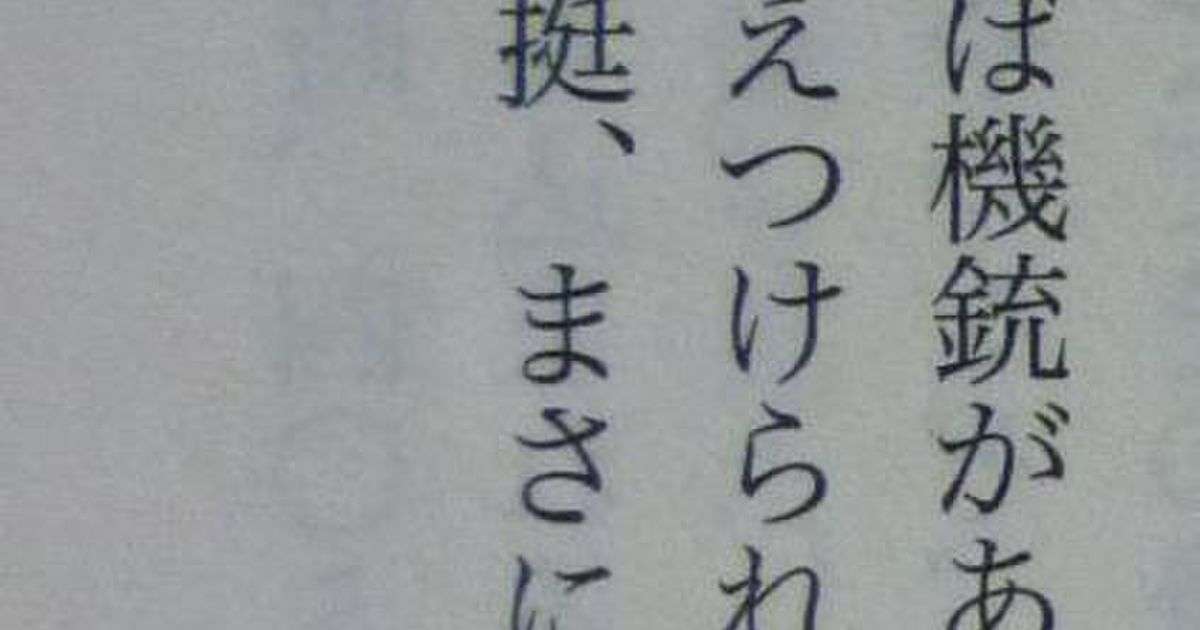 ば機銃があ
えつけられ
挺、まさに